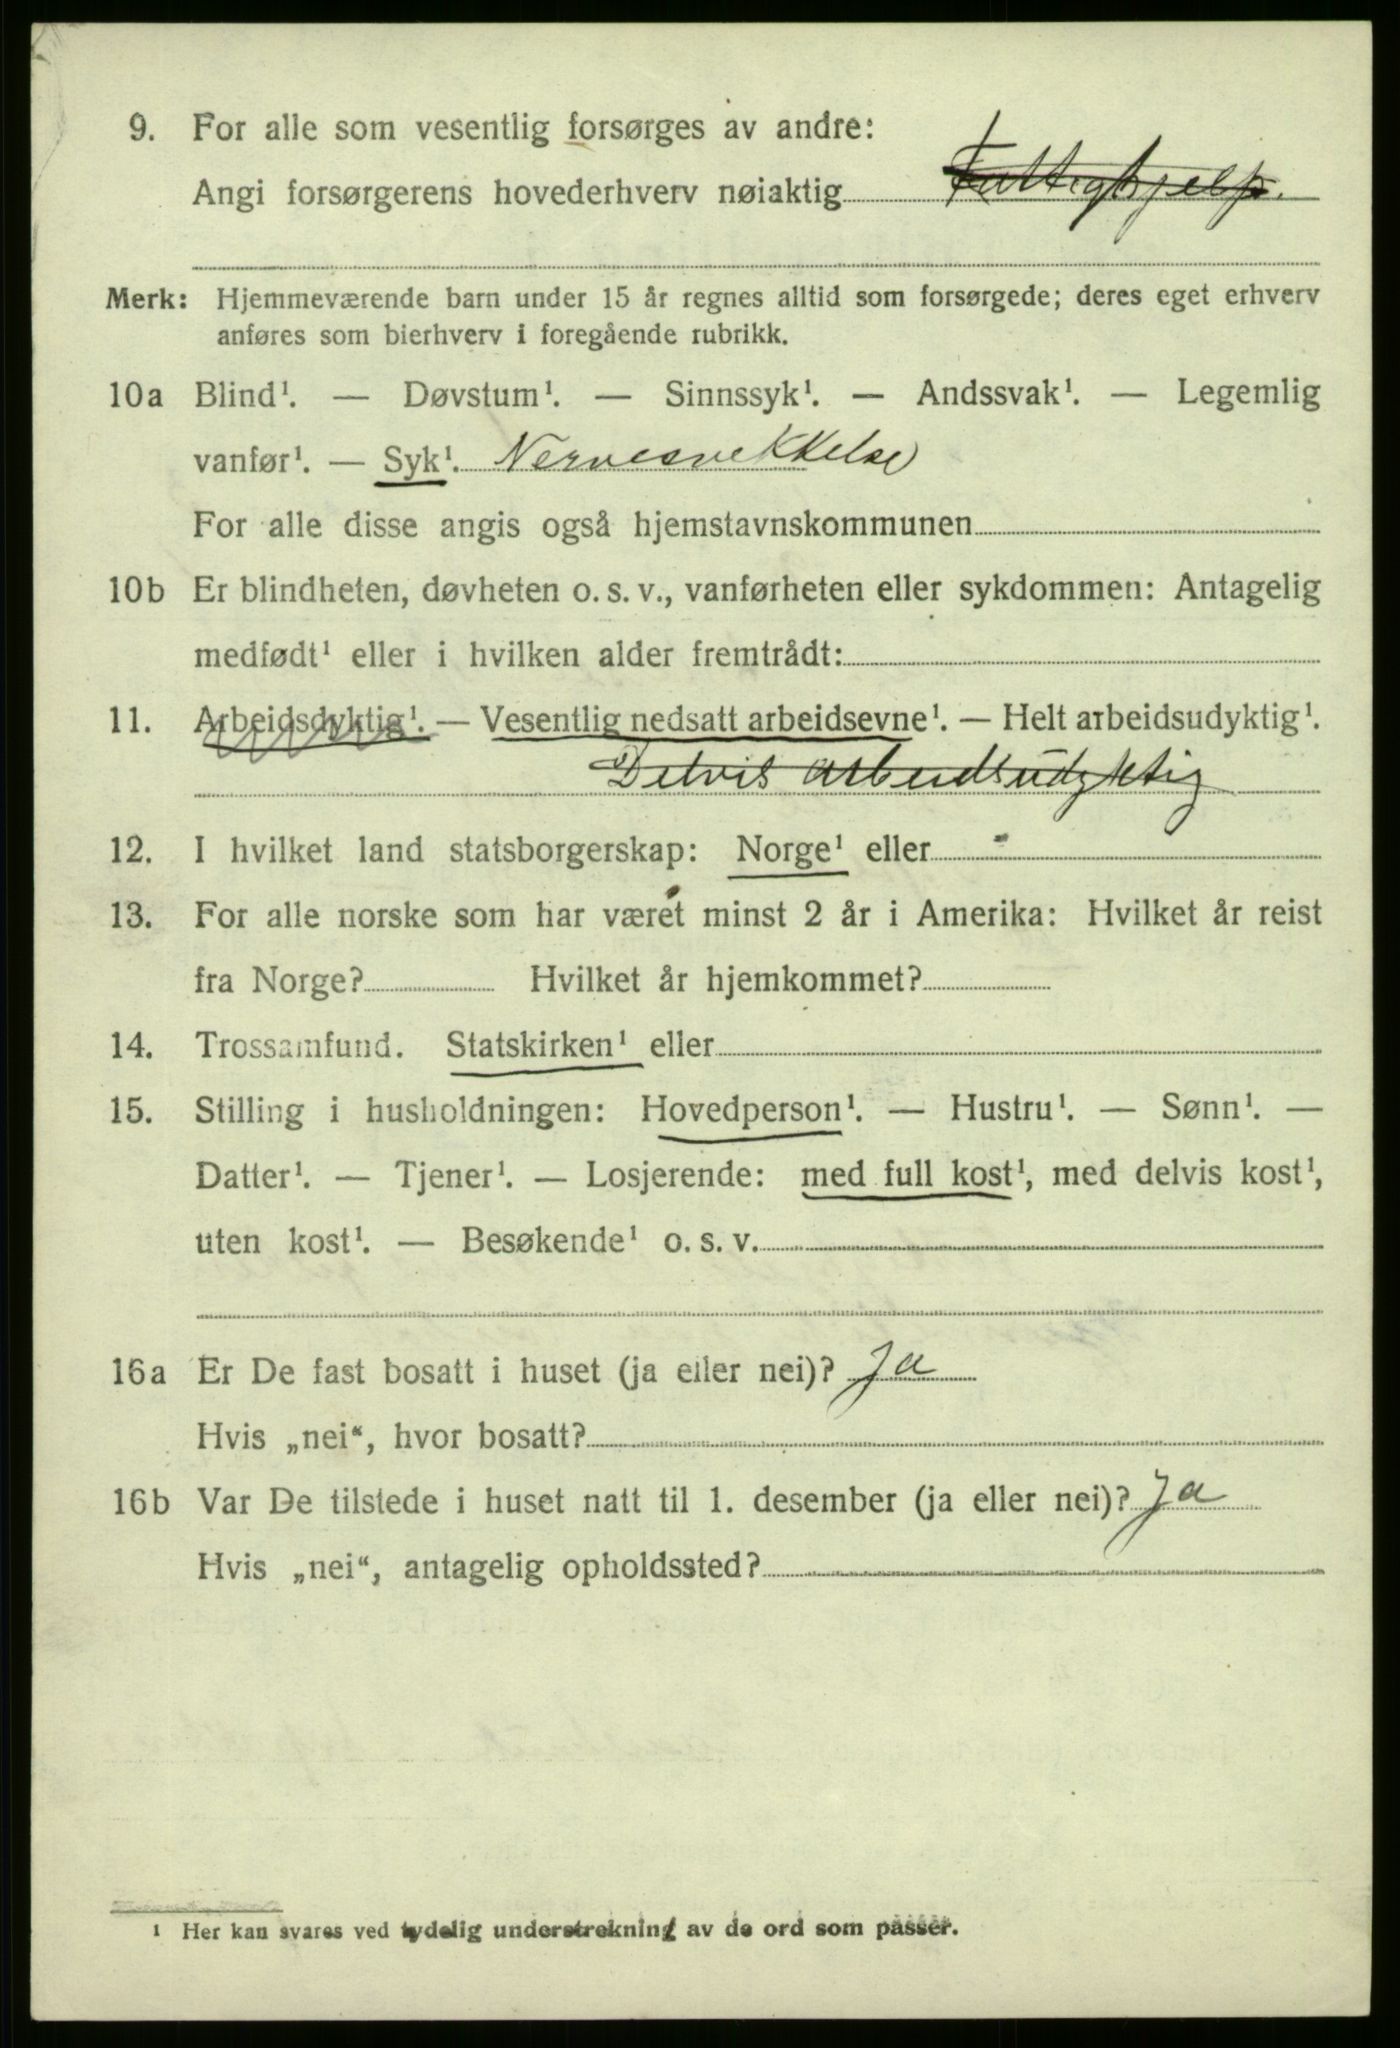 9. For alle som vesentlig forsørges av andre:
Angi forsørgerens hovederhverv nøiaktig Fattighjelp.
Merk: Hjemmeværende barn under 15 år regnes alltid som forsørgede; deres eget erhverv
anføres som bierhverv i foregående rubrikk.
10a Blind¹. — Døvstum¹. — Sinnssyk¹. — Andssvak¹. — Legemlig
vanfør¹. — Syk¹. Nervesvekkelse
For alle disse angis også hjemstavnskommunen
10b Er blindheten, døvheten o. s. v., vanførheten eller sykdommen: Antagelig
medfødt¹ eller i hvilken alder fremtrådt:
11. Arbeidsdyktig¹. — Vesentlig nedsatt arbeidsevne¹. — Helt arbeidsudyktig¹.
Delvis arbeidsudyktig
12. I hvilket land statsborgerskap: Norge¹ eller
13. For alle norske som har været minst 2 år i Amerika: Hvilket år reist
fra Norge? Hvilket år hjemkommet?
14. Trossamfund. Statskirken¹ eller
15. Stilling i husholdningen: Hovedperson¹. — Hustru¹. — Sønn¹. —
Datter¹. — Tjener¹. — Losjerende: med full kost¹, med delvis kost¹,
uten kost¹. — Besøkende¹ o. s. v.
16a Er De fast bosatt i huset (ja eller nei)? Ja
Hvis „nei“, hvor bosatt?
16b Var De tilstede i huset natt til 1. desember (ja eller nei)? Ja
Hvis „nei“, antagelig opholdssted?
¹ Her kan svares ved tydelig understrekning av de ord som passer.